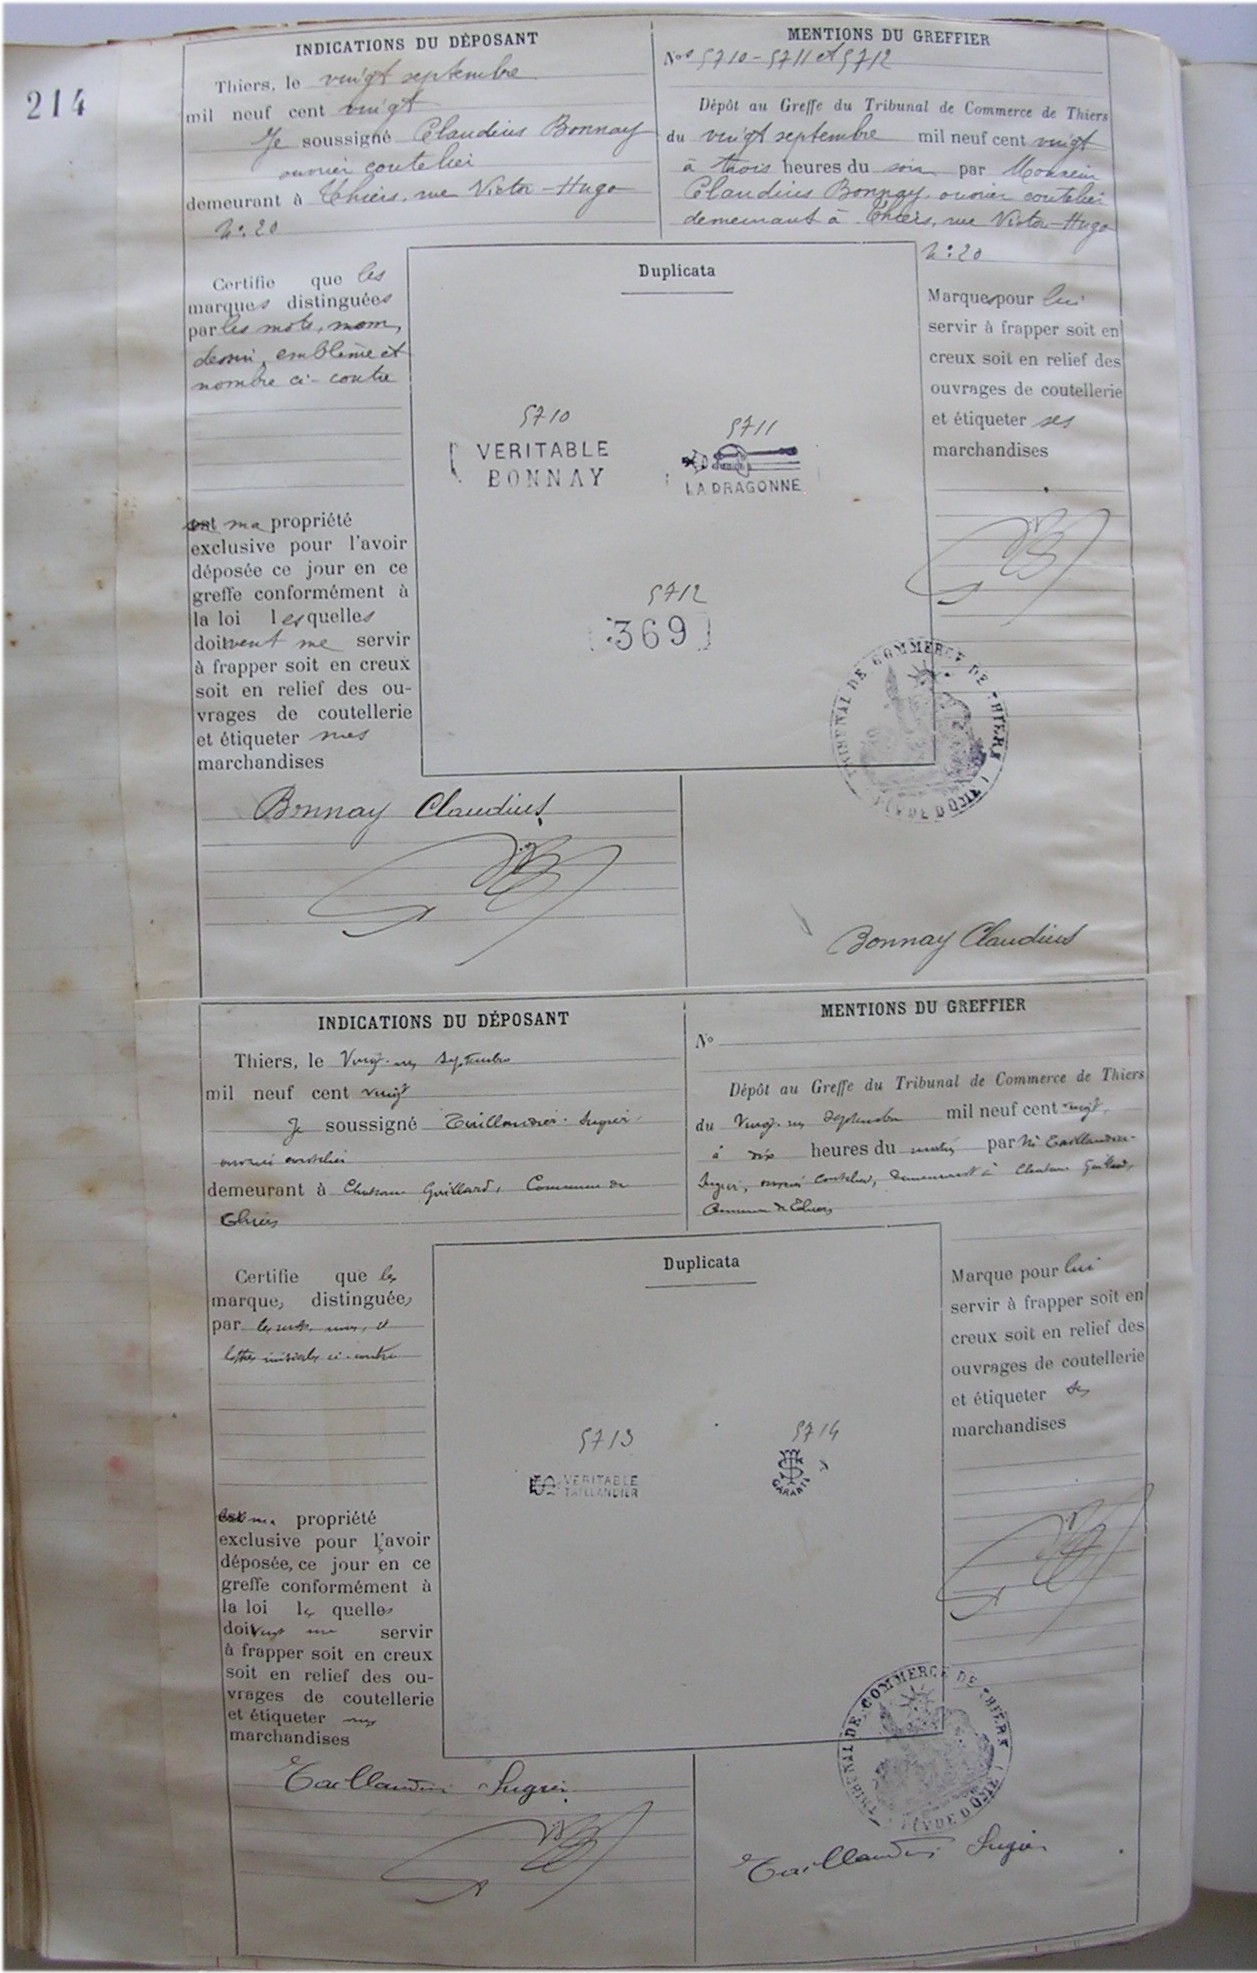 214
INDICATIONS DU DÉPOSANT
Thiers, le vingt septembre
mil neuf cent vingt
Je soussigné Claudius Bonnay
ouvrier coutelier
demeurant à Thiers, rue Victor-Hugo
N: 20
MENTIONS DU GREFFIER
Nos 5710 - 5711 et 5712
Dépôt au Greffe du Tribunal de Commerce de Thiers
du vingt septembre mil neuf cent vingt
à trois heures du soir par Monsieur
Claudius Bonnay, ouvrier coutelier
demeurant à Thiers, rue Victor-Hugo
N: 20
Certifie que les
marques distinguées
par les mots, nom,
dessin, emblème et
nombre ci-contre
sont ma propriété
exclusive pour l'avoir
déposée ce jour en ce
greffe conformément à
la loi lesquelles
doivent me servir
à frapper soit en creux
soit en relief des ou-
vrages de coutellerie
et étiqueter mes
marchandises
Duplicata
5710
VERITABLE
BONNAY
5711
LA DRAGONNE
5712
369
Marques pour lui
servir à frapper soit en
creux soit en relief des
ouvrages de coutellerie
et étiqueter ses
marchandises
TRIBUNAL DE COMMERCE DE THIERS
PUY DE DOME
Bonnay Claudius
Bonnay Claudius
INDICATIONS DU DÉPOSANT
Thiers, le Vingt-un Septembre
mil neuf cent vingt
Je soussigné Taillandier-Sugier
ouvrier coutelier
demeurant à Chateau Gaillard, Commune de
Thiers
MENTIONS DU GREFFIER
No
Dépôt au Greffe du Tribunal de Commerce de Thiers
du Vingt-un Septembre mil neuf cent vingt
à dix heures du matin par Mr Taillandier-
Sugier, ouvrier coutelier, demeurant à Chateau Gaillard,
Commune de Thiers
Certifie que les
marques distinguées
par les mots, nom, et
lettres initiales ci-contre
ma propriété
exclusive pour l'avoir
déposées ce jour en ce
greffe conformément à
la loi les quelles
doivent me servir
à frapper soit en creux
soit en relief des ou-
vrages de coutellerie
et étiqueter mes
marchandises
Duplicata
5713
VERITABLE
TAILLANDIER
5714
GARANTI
Marque pour lui
servir à frapper soit en
creux soit en relief des
ouvrages de coutellerie
et étiqueter ses
marchandises
TRIBUNAL DE COMMERCE DE THIERS
PUY DE DOME
Taillandier Sugier
Taillandier Sugier